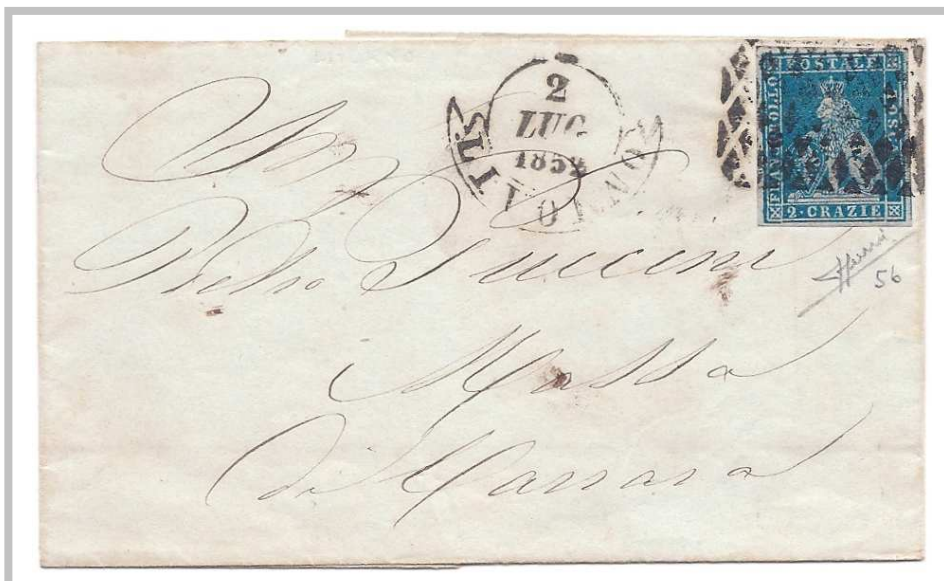 2
LUG
1852
FRANCOBOLLO
POSTALE
TOSCANO
2 · CRAZIE
56
Pietro Puccini
Massa
di Carrara